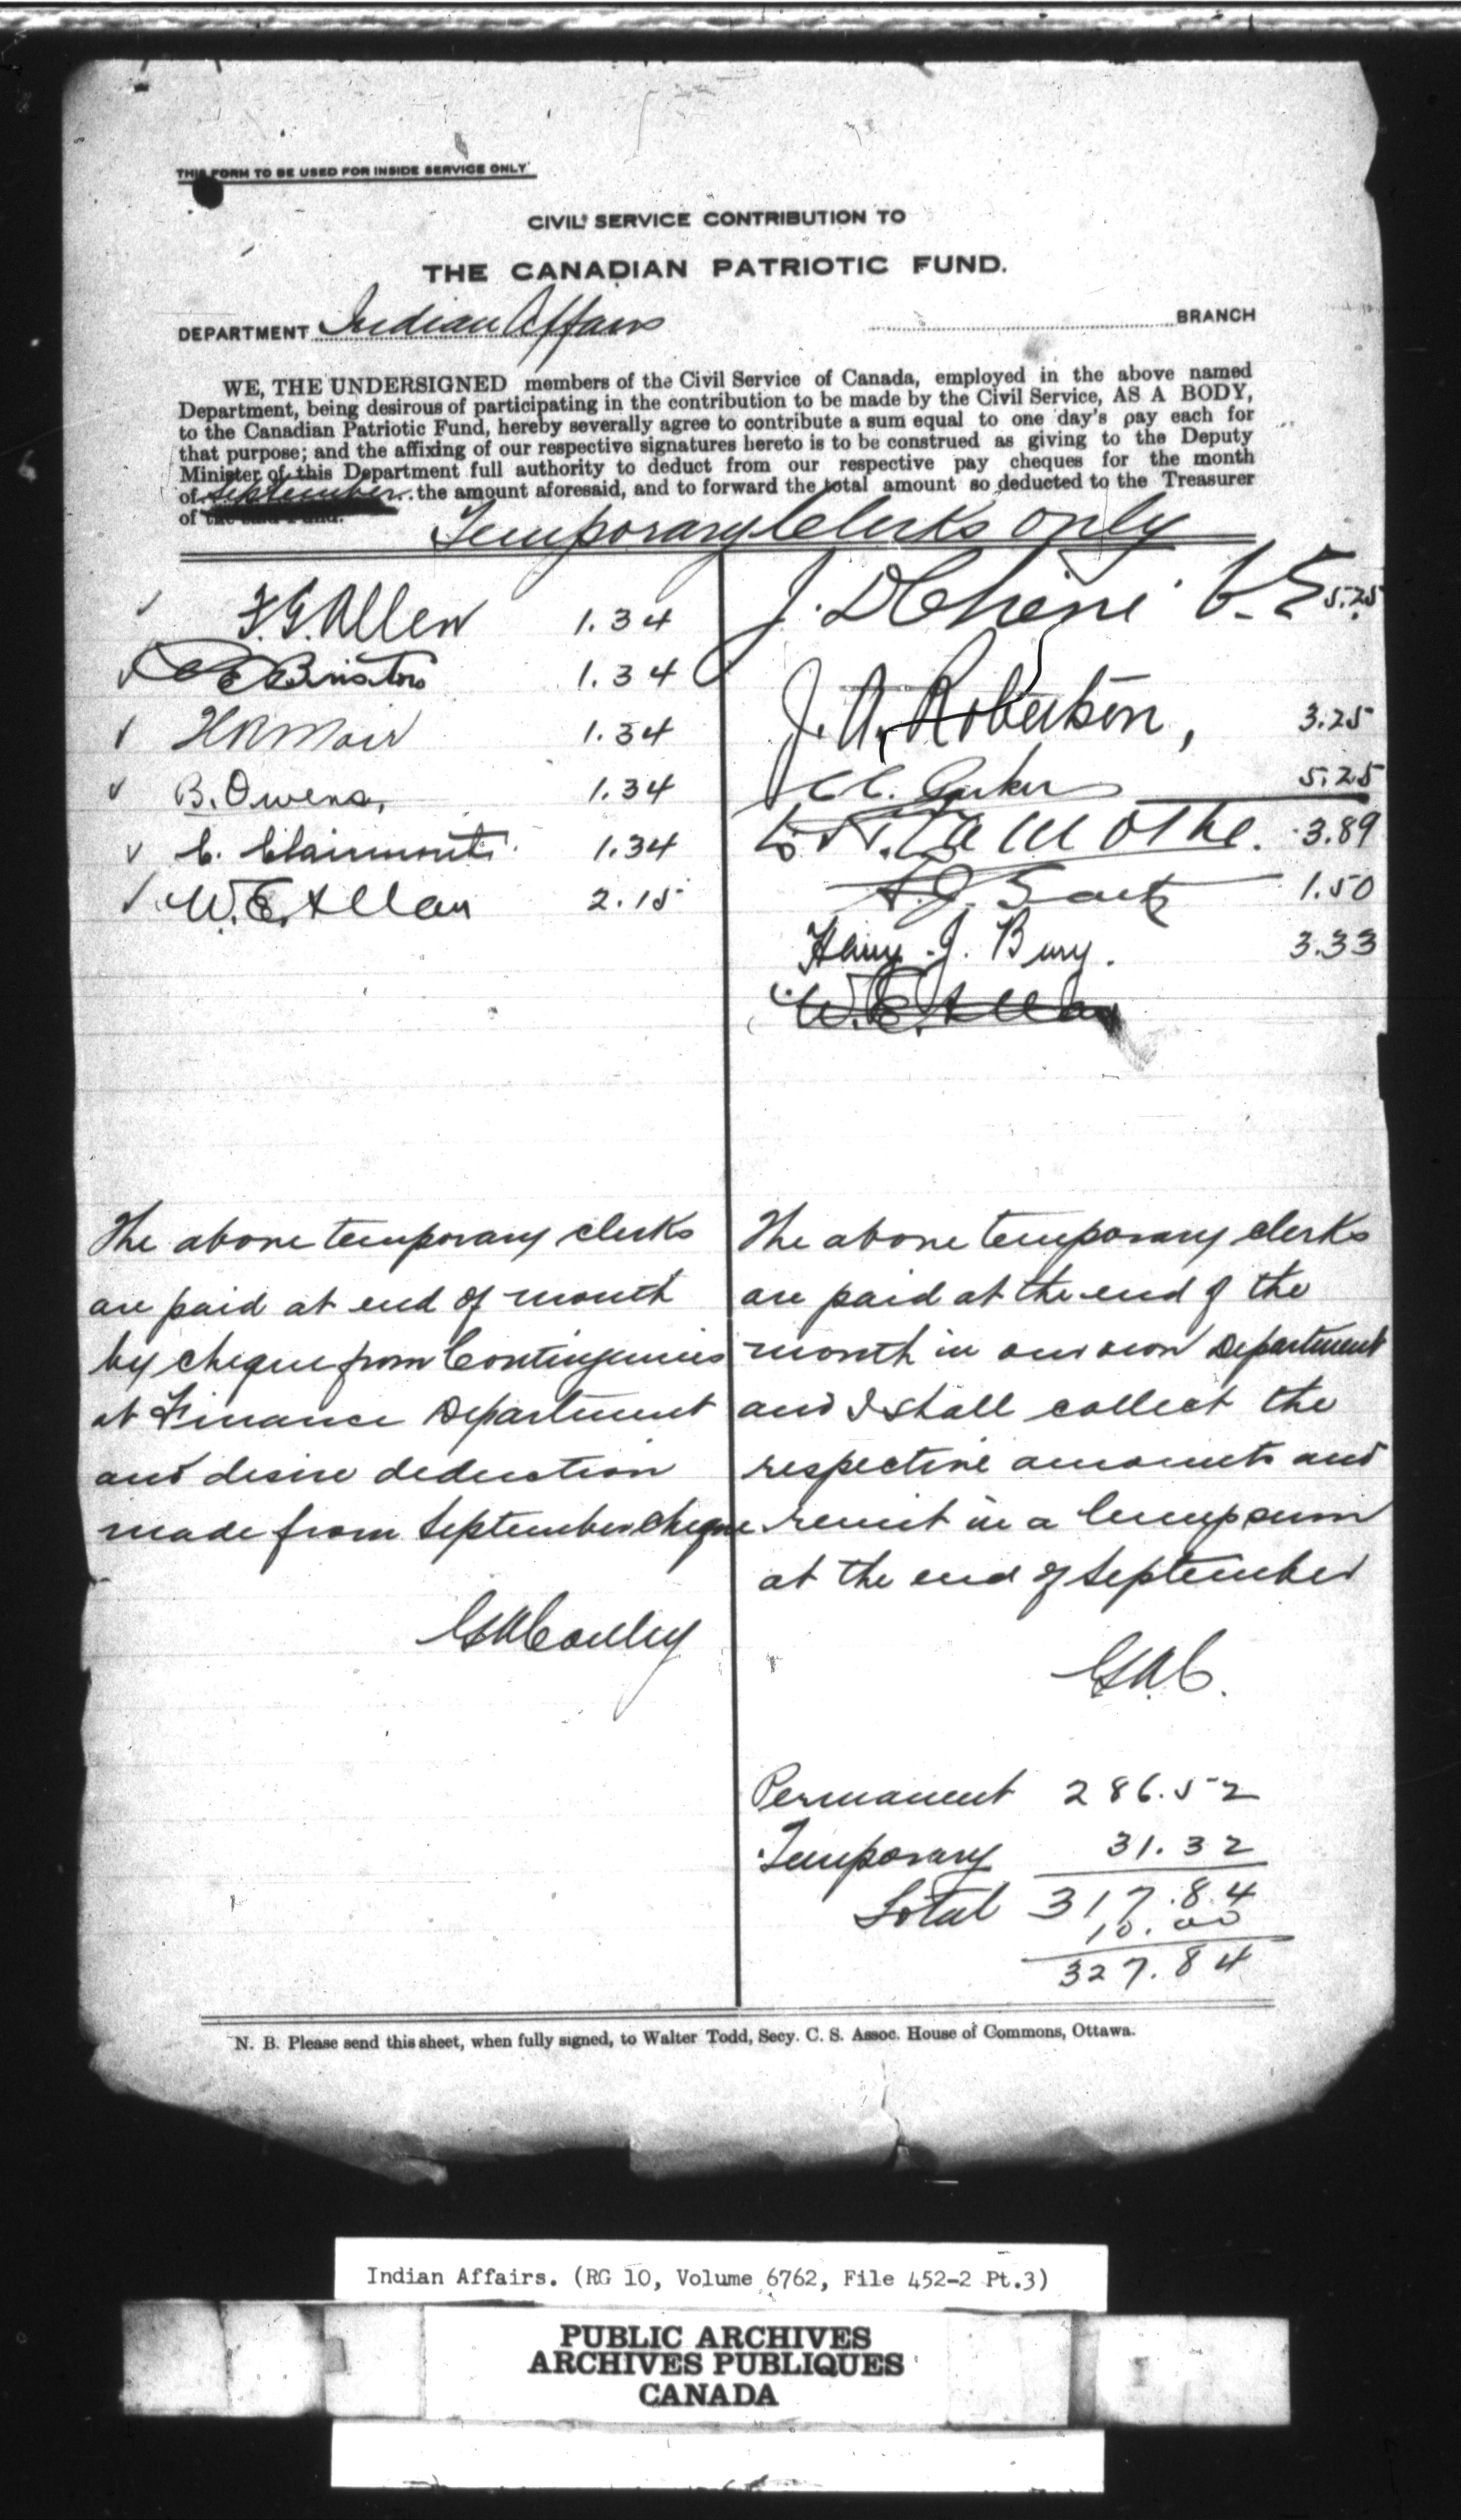 THIS FORM TO BE USED FOR INSIDE SERVICE ONLY
CIVIL SERVICE CONTRIBUTION TO
THE CANADIAN PATRIOTIC FUND.
DEPARTMENT Indian Affairs BRANCH
WE, THE UNDERSIGNED members of the Civil Service of Canada, employed in the above named
Department, being desirous of participating in the contribution to be made by the Civil Service, AS A BODY,
to the Canadian Patriotic Fund, hereby severally agree to contribute a sum equal to one day's pay each for
that purpose; and the affixing of our respective signatures hereto is to be construed as giving to the Deputy
Minister of this Department full authority to deduct from our respective pay cheques for the month
of September the amount aforesaid, and to forward the total amount so deducted to the Treasurer
of the said Fund.
Temporary Clerks only
F.G. Allen 1.34
Bristow 1.34
H R Moir 1.34
B. Owens, 1.34
C. Clairmont 1.34
W.E. Allan 2.15
J. D Chene 5.25
J. A. Robertson, 3.25
C C. Parker 5.25
Lamothe. 3.89
1.50
Harry J. Bury. 3.33
W.E. Allan
The above temporary clerks
are paid at end of month
by cheque from Contingencies
at Finance Department
and desire deduction
made from September cheque
The above temporary clerks
are paid at the end of the
month in our own Department
and I shall collect the
respective amounts and
remit in a lump sum
at the end of September
Permanent 286.52
Temporary 31.32
Total 317.84
10.00
327.84
N. B. Please send this sheet, when fully signed, to Walter Todd, Secy. C. S. Assoc. House of Commons, Ottawa.
Indian Affairs. (RG 10, Volume 6762, File 452-2 Pt.3)
PUBLIC ARCHIVES
ARCHIVES PUBLIQUES
CANADA